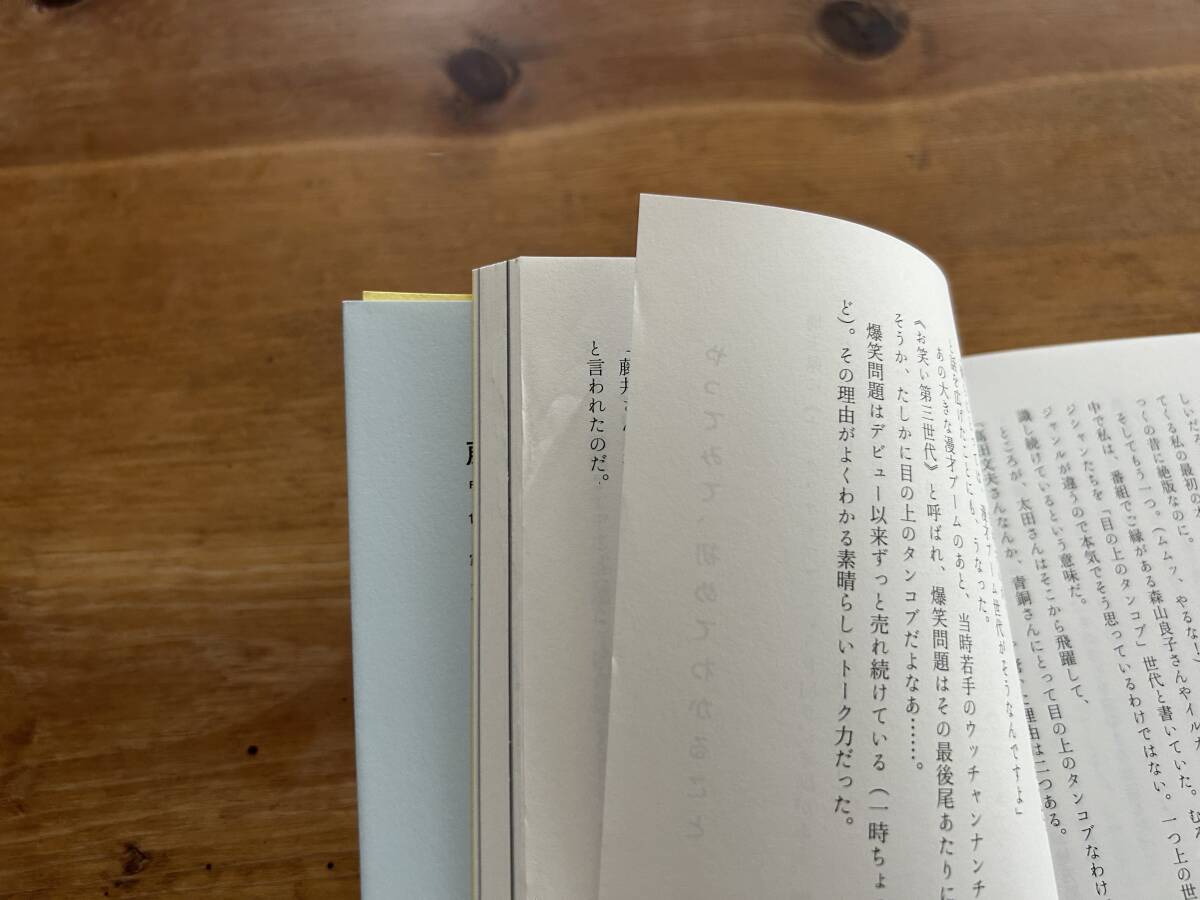 しいだ
てくる私の最初の本
っくの昔に絶版なのに。
そしてもう一つ。（ムムッ、やるなー）
中で私は、番組でご縁がある森山良子さんやイルカ
ジシャンたちを「目の上のタンコブ」世代と書いていた。むろ
ジャンルが違うので本気でそう思っているわけではない。一つ上の世
識し続けているという意味だ。
ところが、太田さんはそこから飛躍して、
「高田文夫さんなんか、青銅さんにとって目の上のタンコブなわけ
理由は二つある。
漫才ブーム世代がそうなんですよ」
うなった。
あの大きな漫才ブームのあと、当時若手のウッチャンナンチ
《お笑い第三世代》と呼ばれ、爆笑問題はその最後尾あたりに
そうか、たしかに目の上のタンコブだよなあ……。
爆笑問題はデビュー以来ずっと売れ続けている（一時ちょ
ど）。その理由がよくわかる素晴らしいトーク力だった。
やってみて、初めてわかること
「藤井さん
と言われたのだ。